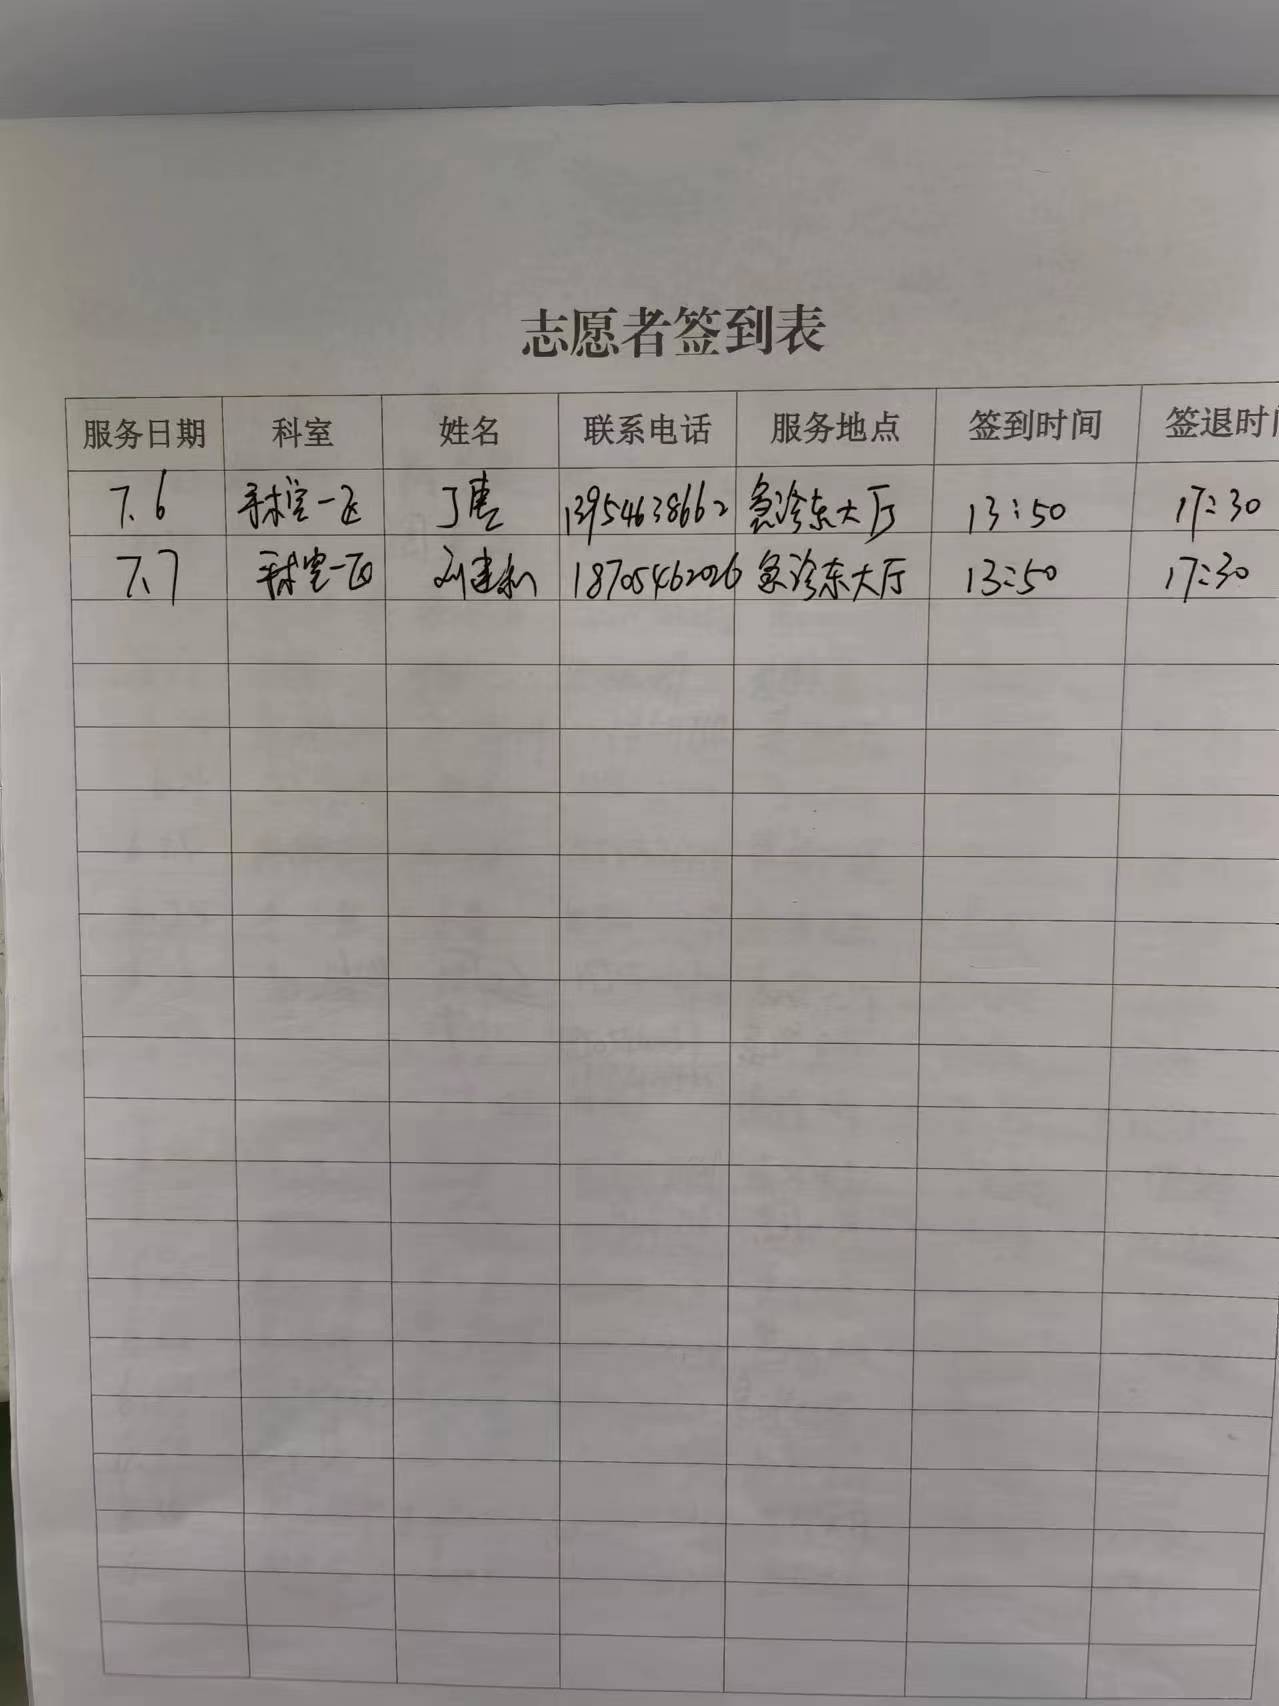 志愿者签到表
服务日期 科室 姓名 联系电话 服务地点 签到时间 签退时
7.6 手术室一区 丁 13954638662 急诊东大厅 13:50 17:30
7.7 手术室一区 刘建 18705462026 急诊东大厅 13:50 17:30